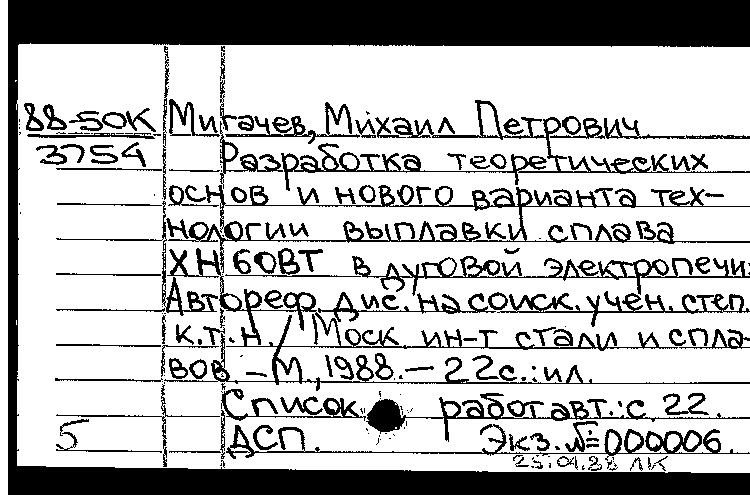 88-50К Мигачев, Михаил Петрович
3754 Разработка теоретических
основ и нового варианта тех-
нологии выплавки сплава
ХН60ВТ в дуговой электропечи:
Автореф. дис. на соиск. учен. степ.
к.т.н. / Моск. ин-т стали и спла-
вов. – М., 1988. – 22с.: ил.
Список работ авт.: с. 22.
5 ДСП. Экз. № 000006.
25.04.88 ЛК